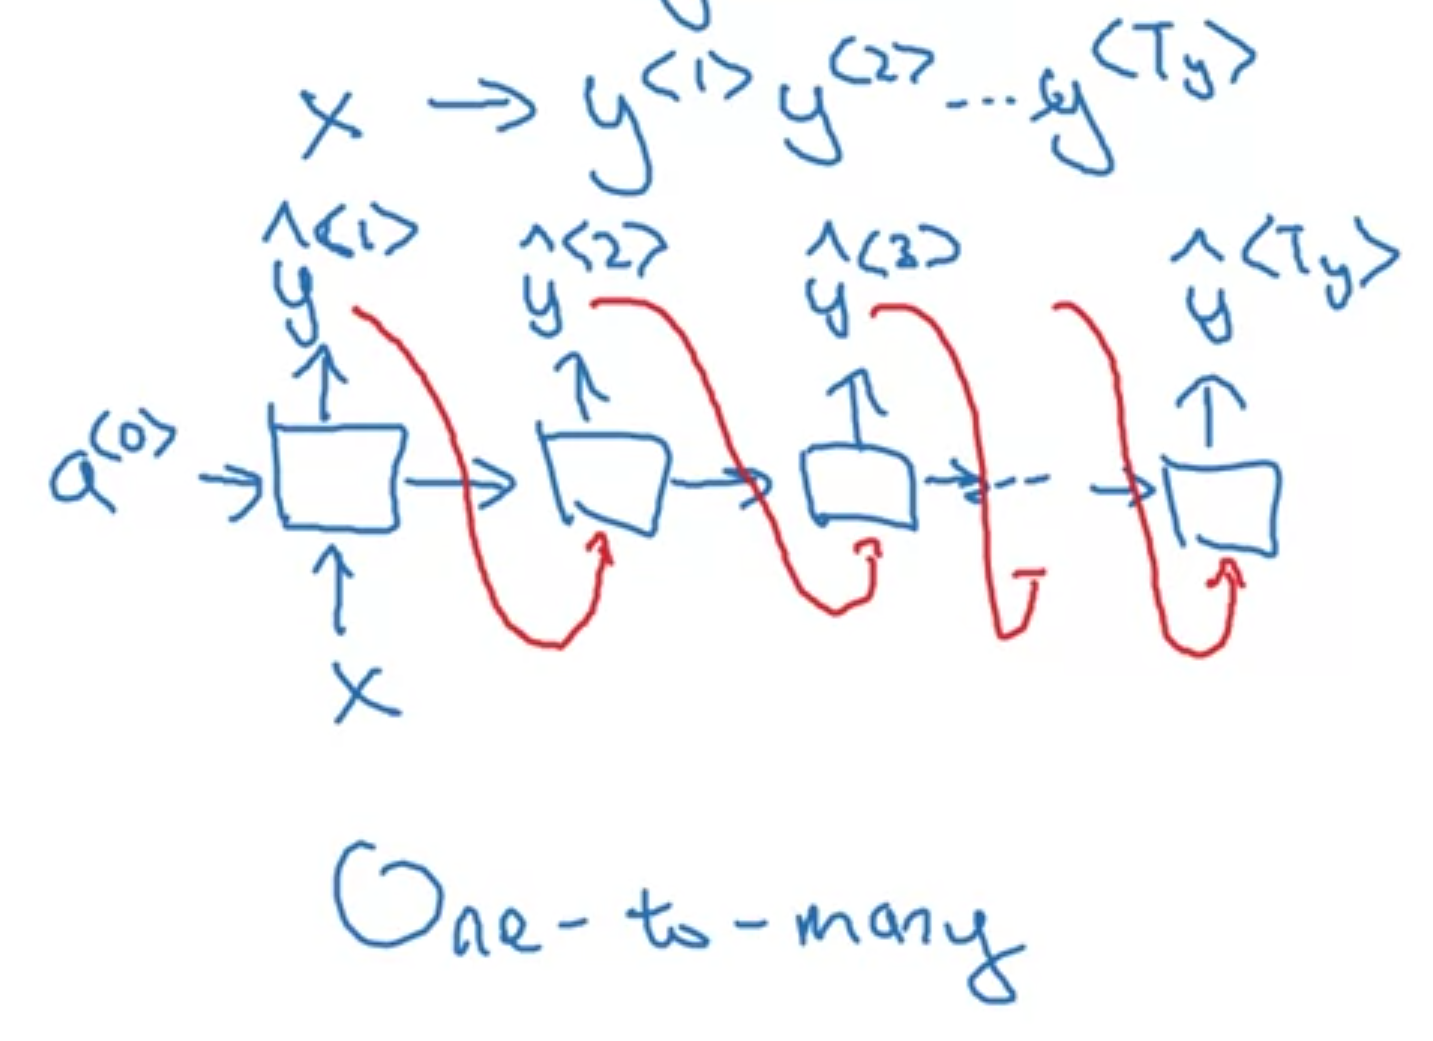 x → y<1> y<2> ... y<Ty>
ŷ<1> ŷ<2> ŷ<3> ŷ<Ty>
a<0>
x
One-to-many